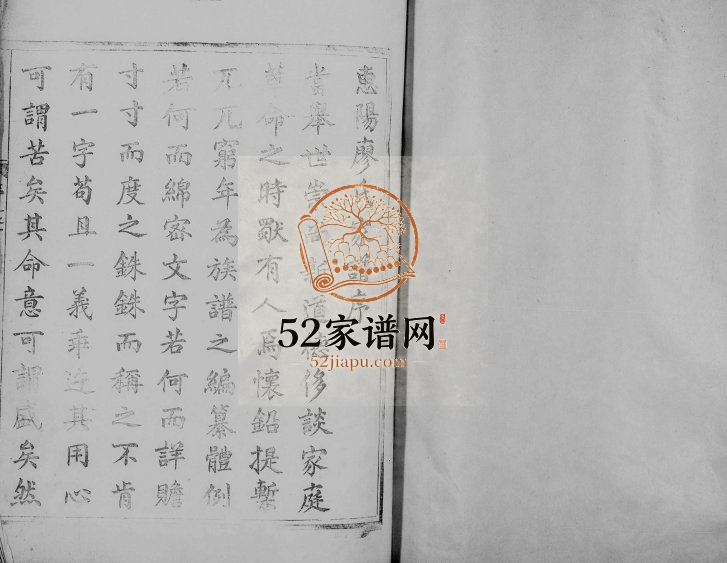 惠陽廖氏家譜序
當舉世崇尚新道德侈談家庭
革命之時歐有人焉懷鉛提槧
兀兀窮年為族譜之編纂體例
若何而綿密文字若何而詳贍
寸寸而度之銖銖而稱之不肯
有一字苟且一義乖迕其用心
可謂苦矣其命意可謂盛矣然
52家谱网
52jiapu.com